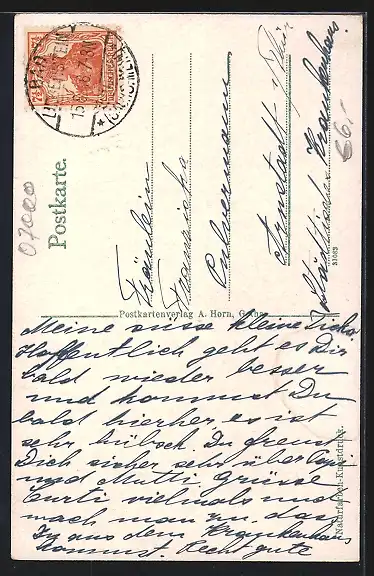 Postkarte.
Fräulein
Franziska
Pulvermann
Arnstadt i/Thür
Städtisch. Krankenhaus.
07000
66,-
31083
Postkartenverlag A. Horn, Gotha.
Naturfarben-Kunstdruck.
BAD
Meine süsse kleine
Hoffentlich geht es Dir
bald wieder besser
und kommst Du
bald hierher, es ist
sehr hübsch. Du freust
Dich sicher sehr über
und Mutti. Grüsse
Curti vielmals und
mach man zu, das
Du aus dem Krankenhaus
kommst. Recht gute